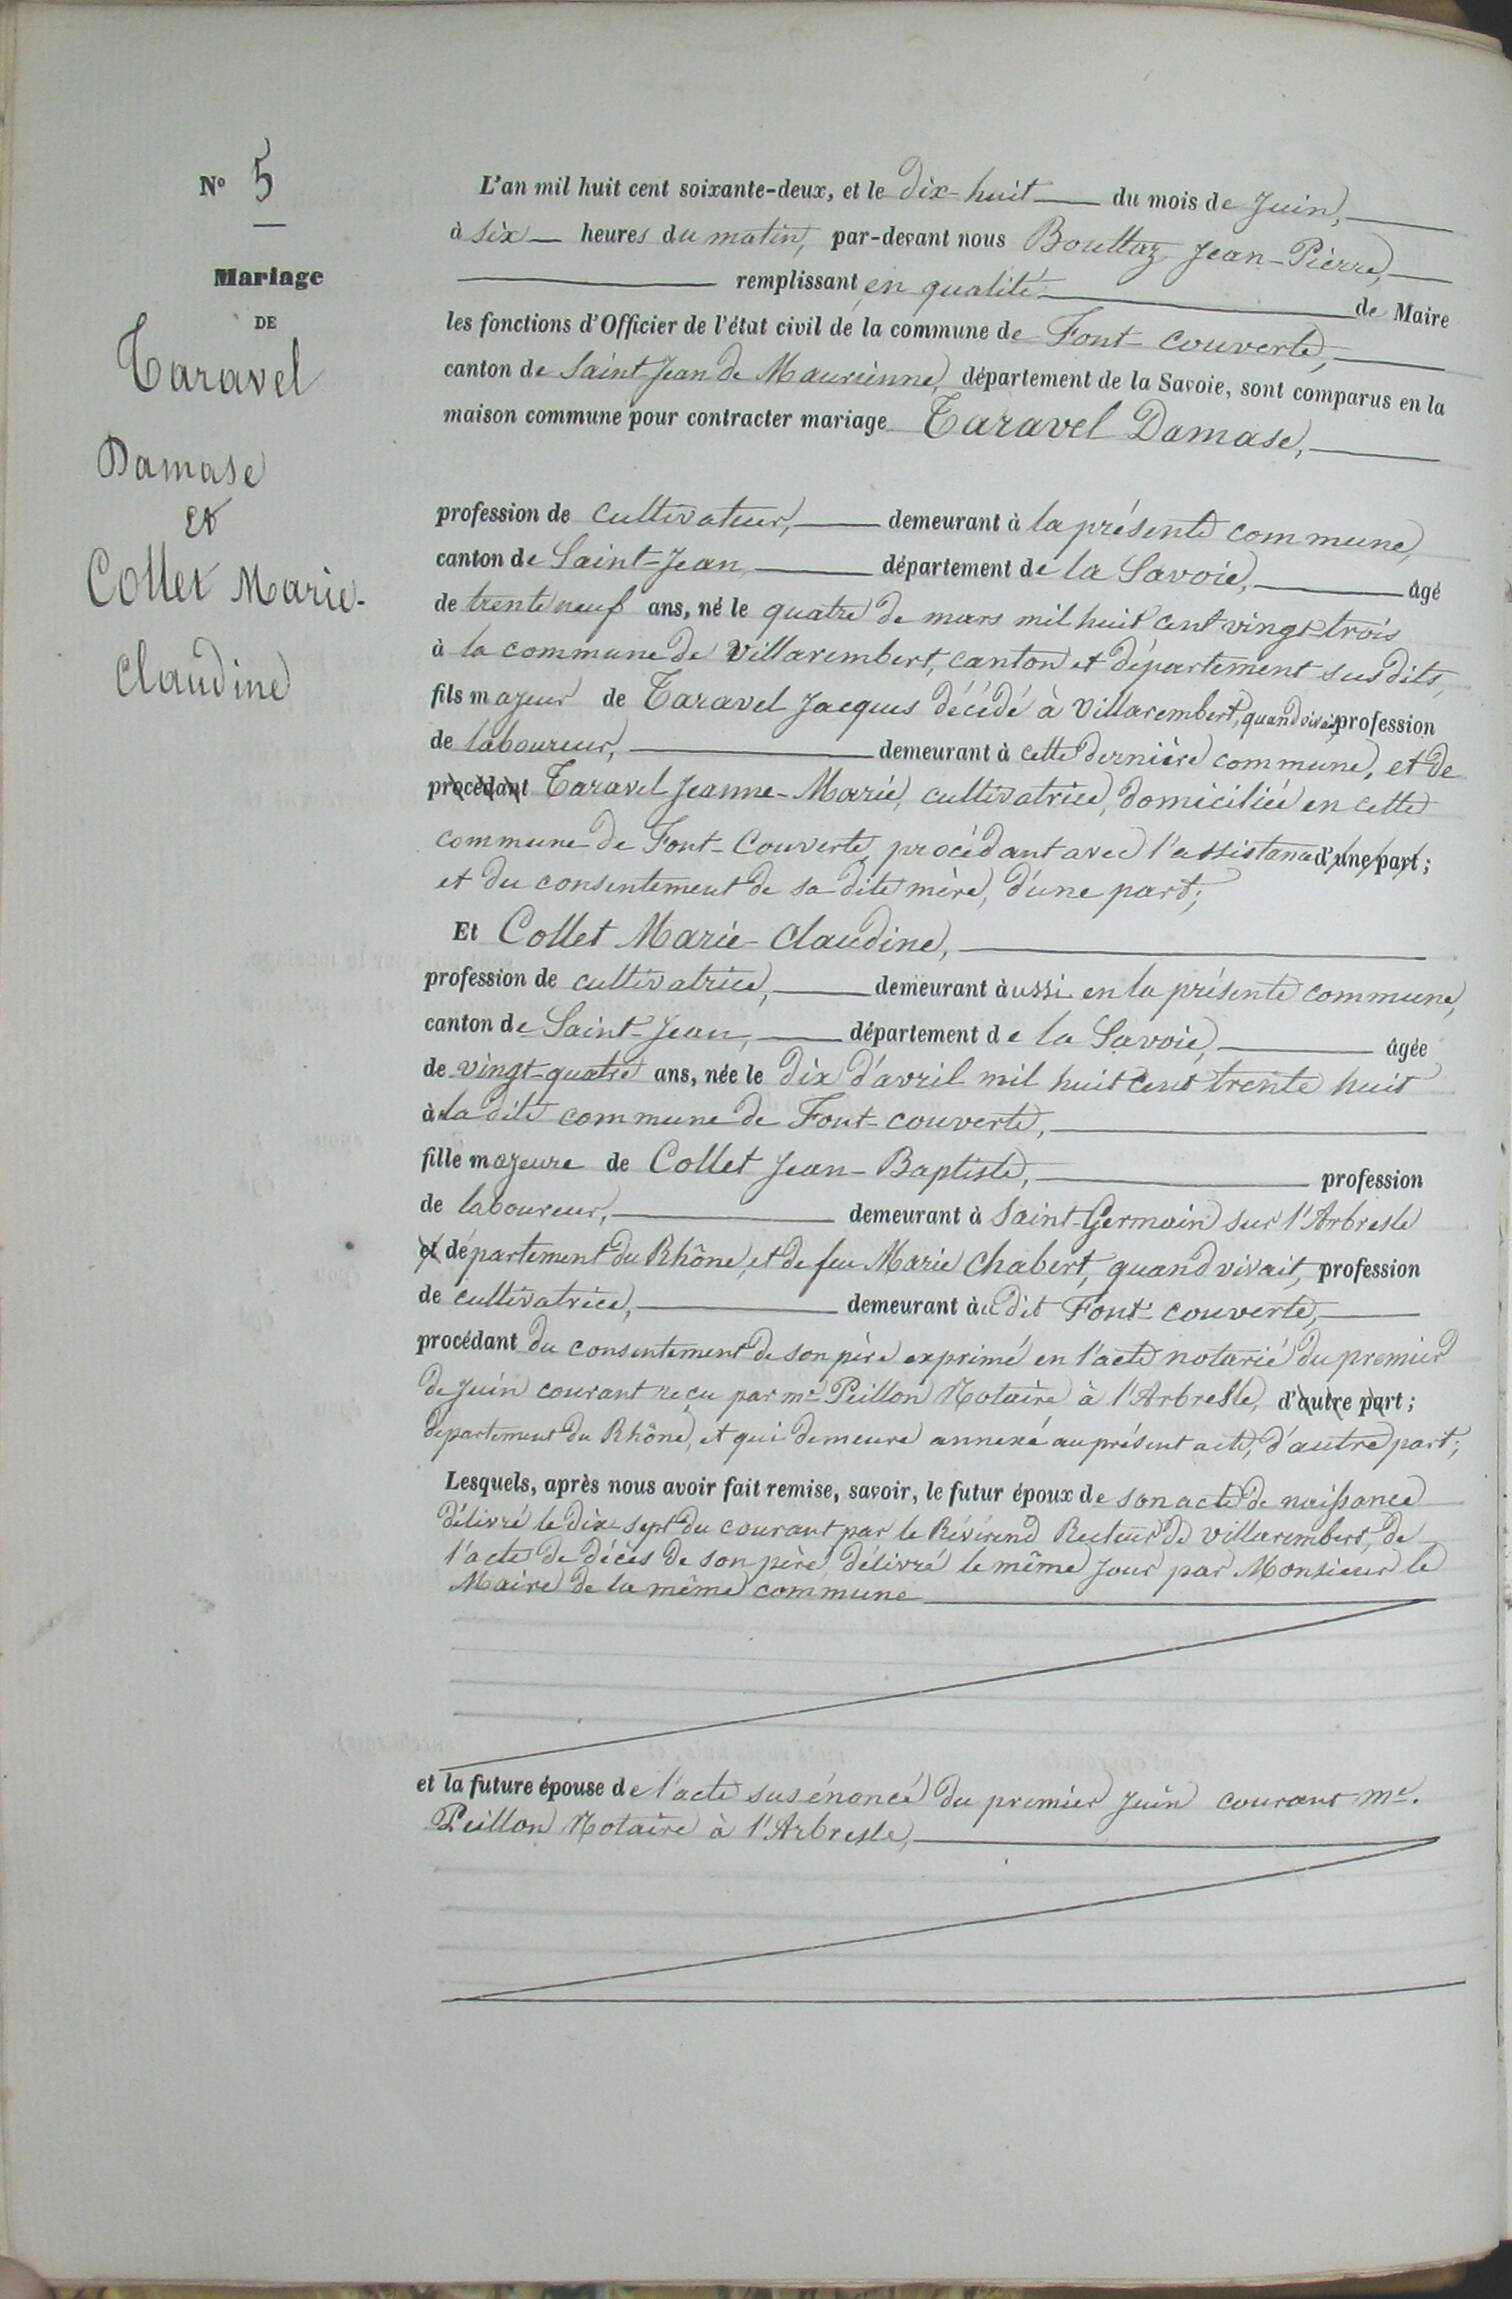 N° 5
Mariage
DE
Taravel
Damase
et
Collet Marie-
Claudine
L'an mil huit cent soixante-deux, et le dix-huit du mois de Juin,
à six heures du matin, par-devant nous Bouttaz Jean-Pierre,
remplissant en qualité de Maire
les fonctions d'Officier de l'état civil de la commune de Font-couverte,
canton de Saint Jean de Maurienne, département de la Savoie, sont comparus en la
maison commune pour contracter mariage Taravel Damase,
profession de cultivateur, demeurant à la présente commune,
canton de Saint-Jean, département de la Savoie, âgé
de trente neuf ans, né le quatre de mars mil huit cent vingt-trois
à la commune de Villarembert, canton et département susdits,
fils majeur de Taravel Jacques décédé à Villarembert, quand vivait profession
de laboureur, demeurant à cette dernière commune, et de
procédant Taravel Jeanne-Marie, cultivatrice, domiciliée en cette
commune de Font-Couverte, procédant avec l'assistance d'une part;
et du consentement de sa dite mère, d'une part;
Et Collet Marie-Claudine,
profession de cultivatrice, demeurant aussi en la présente commune,
canton de Saint-Jean, département de la Savoie, âgée
de vingt-quatre ans, née le dix d'avril mil huit cent trente huit
à la dite commune de Font-couverte,
fille majeure de Collet Jean-Baptiste, profession
de laboureur, demeurant à Saint-Germain sur l'Arbresle
et département du Rhône, et de feu Marie Chabert, quand vivait, profession
de cultivatrice, demeurant audit Font-couverte,
procédant du consentement de son père exprimé en l'acte notarié du premier
de Juin courant reçu par me Peillon Notaire à l'Arbresle, d'autre part;
département du Rhône, et qui demeure annexé au présent acte, d'autre part;
Lesquels, après nous avoir fait remise, savoir, le futur époux de son acte de naissance
délivré le dix-sept du courant par le Révérend Recteur de Villarembert, de
l'acte de décès de son père, délivré le même jour par Monsieur le
Maire de la même commune
et la future épouse de l'acte susénoncé du premier Juin courant me.
Peillon Notaire à l'Arbresle,